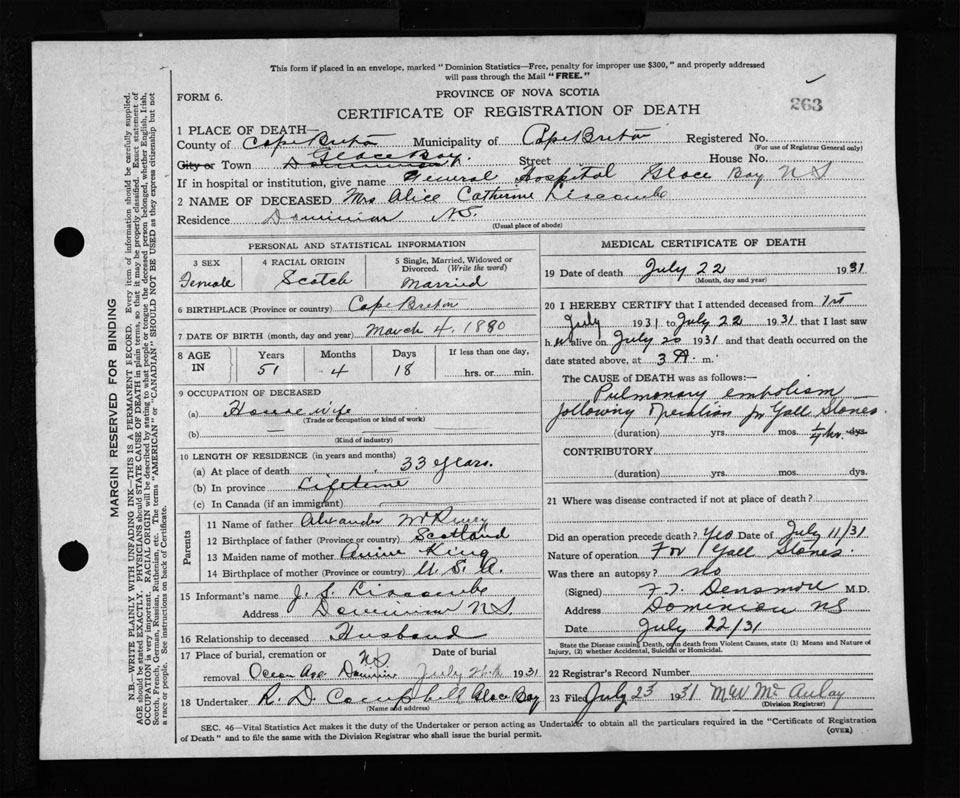 This form if placed in an envelope, marked "Dominion Statistics—Free, penalty for improper use $300," and properly addressed
will pass through the Mail "FREE."
PROVINCE OF NOVA SCOTIA
FORM 6.
CERTIFICATE OF REGISTRATION OF DEATH
263
1 PLACE OF DEATH—
County of Cape Breton Municipality of Cape Breton Registered No.
(For use of Registrar General only)
City or Town Glace Bay. Street House No.
If in hospital or institution, give name General Hospital Glace Bay NS
2 NAME OF DECEASED Mrs Alice Catherine
Residence Dominion NS.
(Usual place of abode)
PERSONAL AND STATISTICAL INFORMATION
3 SEX 4 RACIAL ORIGIN 5 Single, Married, Widowed or Divorced. (Write the word)
Female Scotch Married
6 BIRTHPLACE (Province or country) Cape Breton
7 DATE OF BIRTH (month, day and year) March 4, 1880
8 AGE IN Years Months Days If less than one day,
51 4 18 hrs. or min.
9 OCCUPATION OF DECEASED
(a) Housewife
(Trade or occupation or kind of work)
(b) —
(Kind of industry)
10 LENGTH OF RESIDENCE (in years and months)
(a) At place of death 33 years.
(b) In province Lifetime
(c) In Canada (if an immigrant)
Parents
11 Name of father Alexander
12 Birthplace of father (Province or country) Scotland
13 Maiden name of mother Annie King
14 Birthplace of mother (Province or country) U.S.A.
15 Informant's name J. S.
Address Dominion NS
16 Relationship to deceased Husband
17 Place of burial, cremation or removal Date of burial
Ocean Ave Dominion NS July 1931
18 Undertaker R. D. Campbell Glace Bay
(Name and address)
MEDICAL CERTIFICATE OF DEATH
19 Date of death July 22 1931
(Month, day and year)
20 I HEREBY CERTIFY that I attended deceased from 1st
July 1931 to July 22 1931 that I last saw
her alive on July 20 1931 and that death occurred on the
date stated above, at 3 A. m.
The CAUSE OF DEATH was as follows:—
Pulmonary embolism
following operation for Gall Stones
(duration) yrs. mos. hr. dys.
CONTRIBUTORY
(duration) yrs. mos. dys.
21 Where was disease contracted if not at place of death?
Did an operation precede death? Yes Date of July 11/31
Nature of operation For Gall Stones.
Was there an autopsy? no
(Signed) Densmore M.D.
Address Dominion NS
Date July 22/31
State the Disease causing Death, or in death from Violent Causes, state (1) Means and Nature of
Injury, (2) whether Accidental, Suicidal or Homicidal.
22 Registration Record Number
23 Filed July 23 1931 McAulay
(Division Registrar)
SEC. 46—Vital Statistics Act makes it the duty of the Undertaker or person acting as Undertaker to obtain all the particulars required in the "Certificate of Registration
of Death" and to file the same with the Division Registrar who shall issue the burial permit.
(OVER)
MARGIN RESERVED FOR BINDING
N.B.—WRITE PLAINLY WITH UNFADING INK—THIS IS A PERMANENT RECORD. Every item of information should be carefully supplied.
AGE should be stated EXACTLY. PHYSICIANS should STATE CAUSE OF DEATH in plain terms, so that it may be properly classified. Exact statement of
OCCUPATION is very important. RACIAL ORIGIN will be described by stating to what people or tongue the deceased person belonged, whether English, Irish,
Scotch, French, German, Russian, Ruthenian, etc. The terms "AMERICAN" or "CANADIAN" SHOULD NOT BE USED as they express citizenship but not
a race or people. See instructions on back of Certificate.